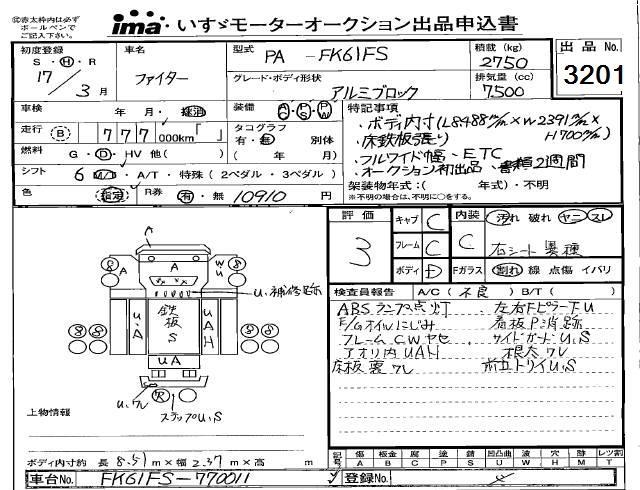 ◎赤太枠内は必ずボールペンでご記入ください。
ima・いすゞモーターオークション出品申込書
初度登録 S・H・R 17／3月
車名 ファイター
型式 PA - FK61FS
グレード・ボディ形状 アルミブロック
積載(kg) 2750
排気量(cc) 7500
出品No. 3201
車検 年・月・抹消
装備 AC PS PW
走行 B 777 000km「 」
タコグラフ 有・無 別体 ( 年 月)
燃料 G・D・HV 他( )
シフト 6 M/T・A/T・特殊(2ペダル・3ペダル)
色 指定 R券 有・無 10910 円
特記事項
・ボディ内寸(L8488m/m×W2391m/m×H700m/m)
・床鉄板張り
・フルワイド幅、ETC
・オークション初出品、書類2週間
架装物年式:( 年式)・不明
※不明の場合は、不明に○をする。
評価 3
キャブ C
フレーム C
ボディ D
内装 C 汚れ 破れ ヤニ スレ
右シート異種
Fガラス 割れ 線 点傷 イバリ
検査員報告 A/C(不良) B/T( )
ABSランプ点灯 左右FピラーFU
E/Gオイルにじみ 看板P消跡
フレームCWヤセ サイドガードU、S
アオリ内UAH 根太ワレ
床板裏ワレ 前立トリイU、S
A
A A W U
U、補修跡
U・A 鉄板S UAH
UA
U、ワレ R
ステップU、S
上物情報
ボディ内寸約 長 8.51 m×幅 2.37 m×高 m
記号 傷A 板金B 腐C 塗P 錆S 凹凸曲U 波W 穴H 跡M レツ割T
車台No. FK61FS-770011
登録No.